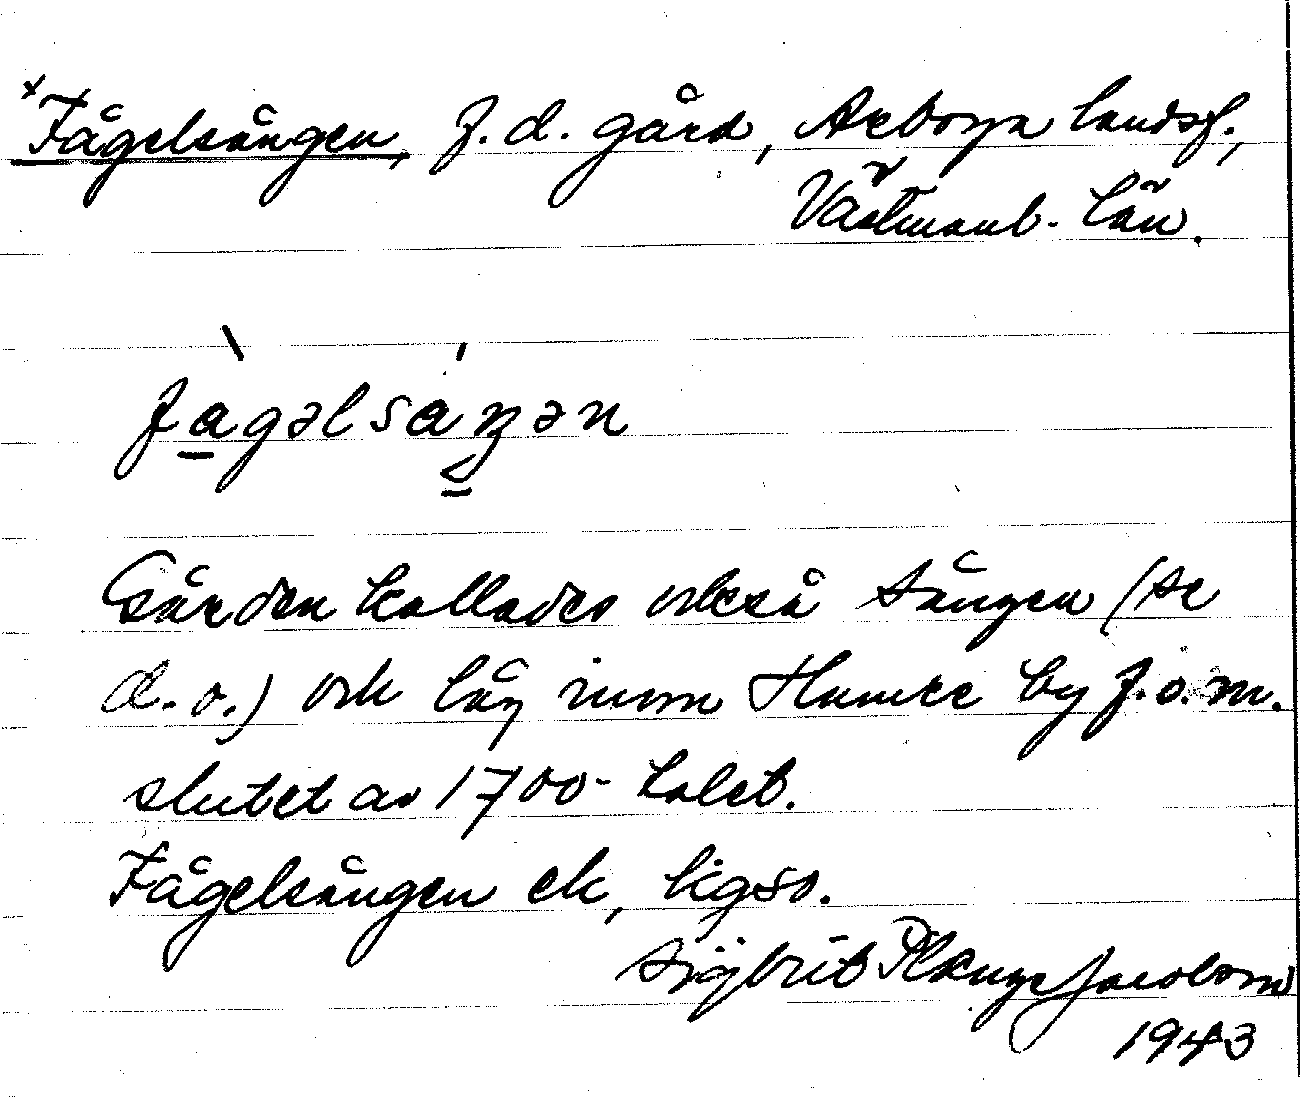 *Fågelsången, f.d. gård, Arboga landsf.,
Västmanl. län.
fàgəlsáŋən
Gården kallades också Sången (se
d.o.) och låg inom Hamre by f.o.m.
slutet av 1700-talet.
Fågelsången ek, ligso.
Sigbrit Plænge Jacobson
1943